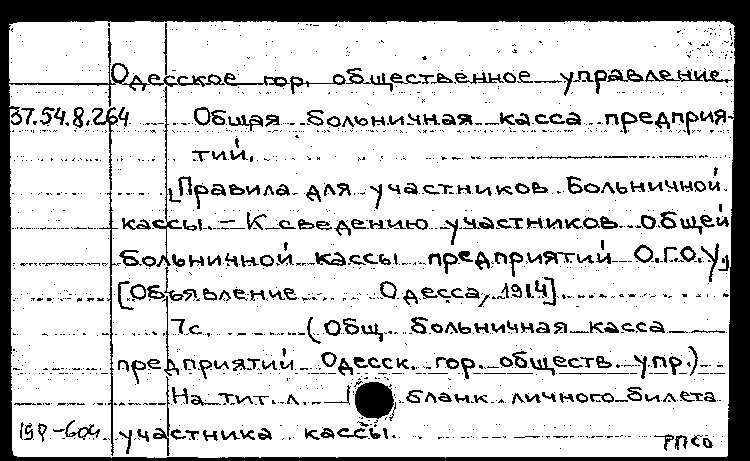 Одесское гор. общественное управление.
37.54.8.264 Общая больничная касса предприя-
тий.
[Правила для участников Больничной
кассы. – К сведению участников общей
больничной кассы предприятий О.Г.О.У.]
[Объявление Одесса, 1914].
7с. (Общ. больничная касса
предприятий Одесск. гор. обществ. упр.)
На тит. л. бланк личного билета
участника кассы.
РПСО